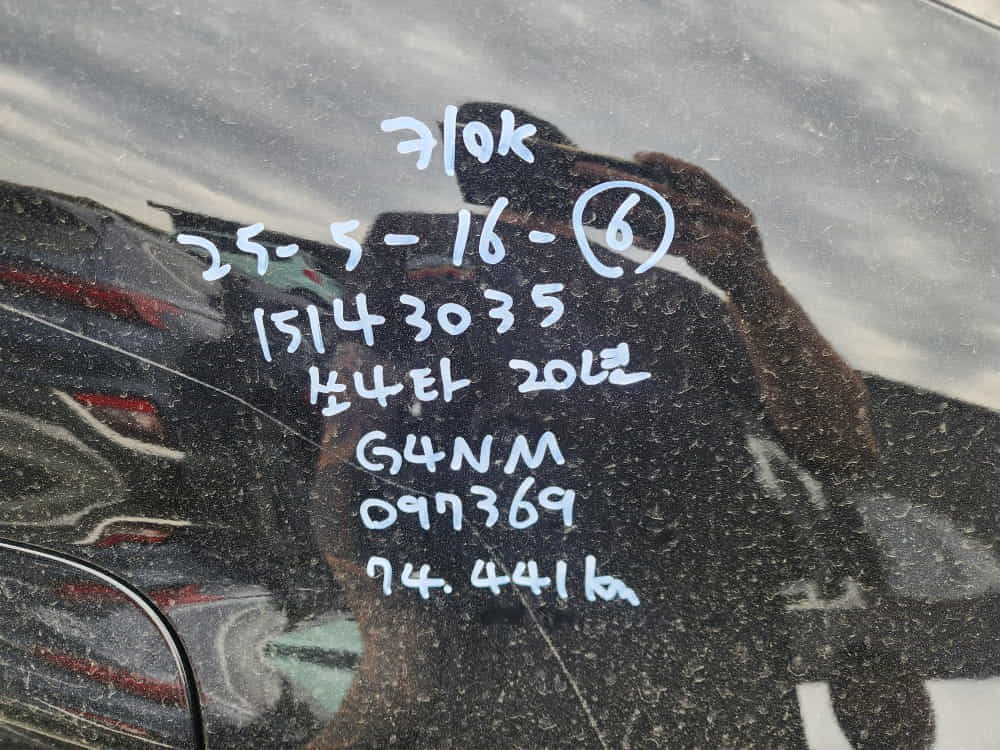 키OK
25-5-16-⑥
15143035
쏘나타 20년
G4NM
097369
74.441km